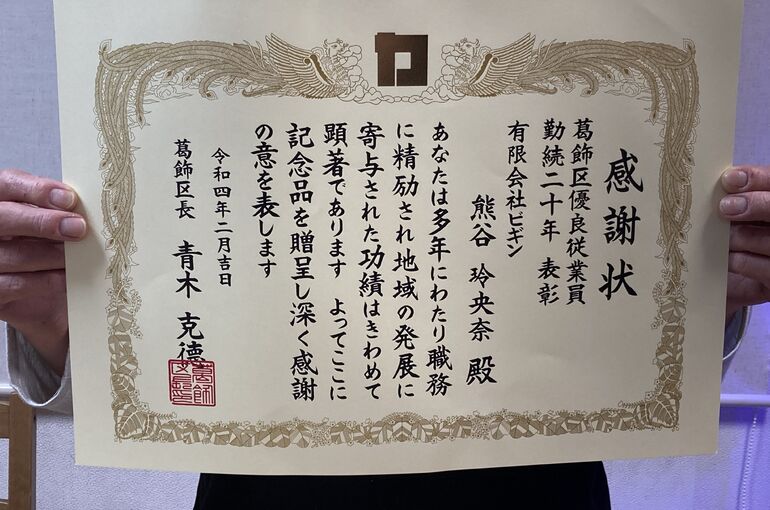 感謝状
葛飾区優良従業員
勤続二十年 表彰
有限会社ビギン
熊谷 玲央奈 殿
あなたは多年にわたり職務
に精励され地域の発展に
寄与された功績はきわめて
顕著であります よってここに
記念品を贈呈し深く感謝
の意を表します
令和四年二月吉日
葛飾区長 青木 克德